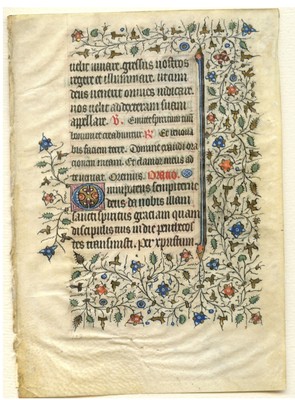 uelit iuuare. gressus nostros
regere et illuminare. ut cum
deus uenerit omnes iudicare.
nos uelit ad dexteram suam
apellare. V. Emitte spiritum tuū
creabuntur. R Et renoua
bis faciem terre. Domine exaudi ora
cionem meam. Et clamor meus ad
te ueniat. Oremus. Oratio.
Omnipotens sempiterne
deus da nobis illam
sancti spiritus graciam quam
discipulis tuis in die penthecos
tes transmisti. Per xpristum.